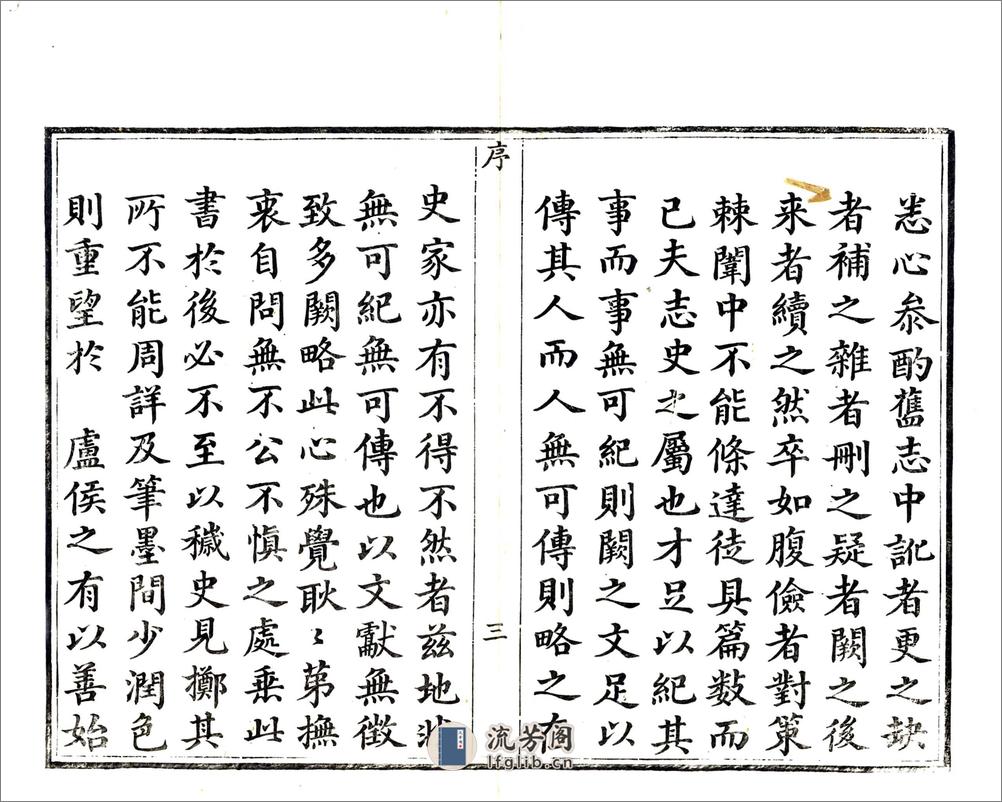 悉心叅酌舊志中訛者更之缺
者補之雜者刪之疑者闕之後
来者續之然卒如腹儉者對策
棘闈中不能條達徒具篇数而
已夫志史之屬也才足以紀其
事而事無可紀則闕之文足以
傳其人而人無可傳則略之在
序
三
史家亦有不得不然者兹地非
無可紀無可傳也以文獻無徵
致多闕略此心殊覺耿〻第撫
衷自問無不公不慎之處乗此
書於後必不至以穢史見擲其
所不能周詳及筆墨間少潤色
則重望於 盧侯之有以善始
流芳阁
lfglib.cn